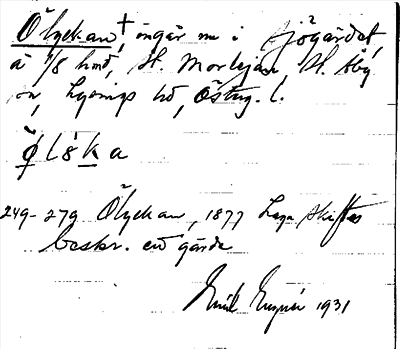 Ölyckan† ingår nu i Sjögärdet,
å 1/8 hmd, St. Morlejan, St. Åby
sn, Lysings hd, Österg. l.
ö́ l ŏ k a
249-279 Ölyckan, 1877 Laga skiftes
beskr. en gärde
1931